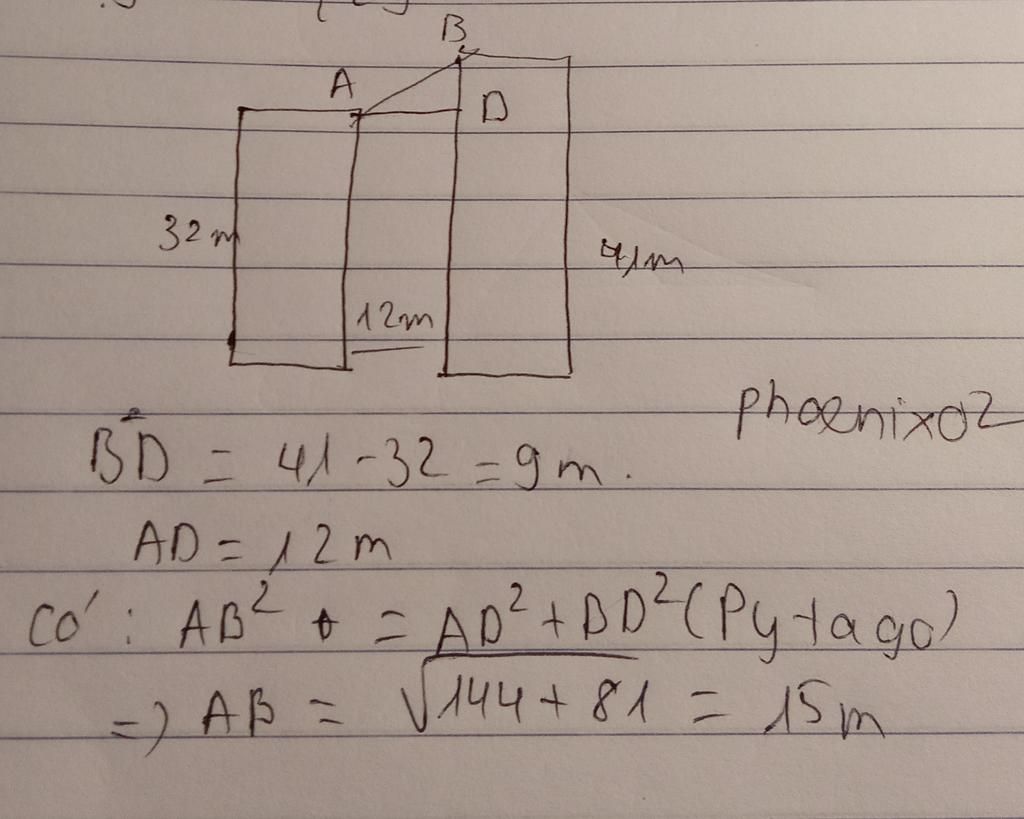 B
A
D
32m
41m
12m
phoenix02
BD = 41 - 32 = 9m.
AD = 12m
Có: AB² = AD² + BD² (Pytago)
=> AB = √144 + 81 = 15m